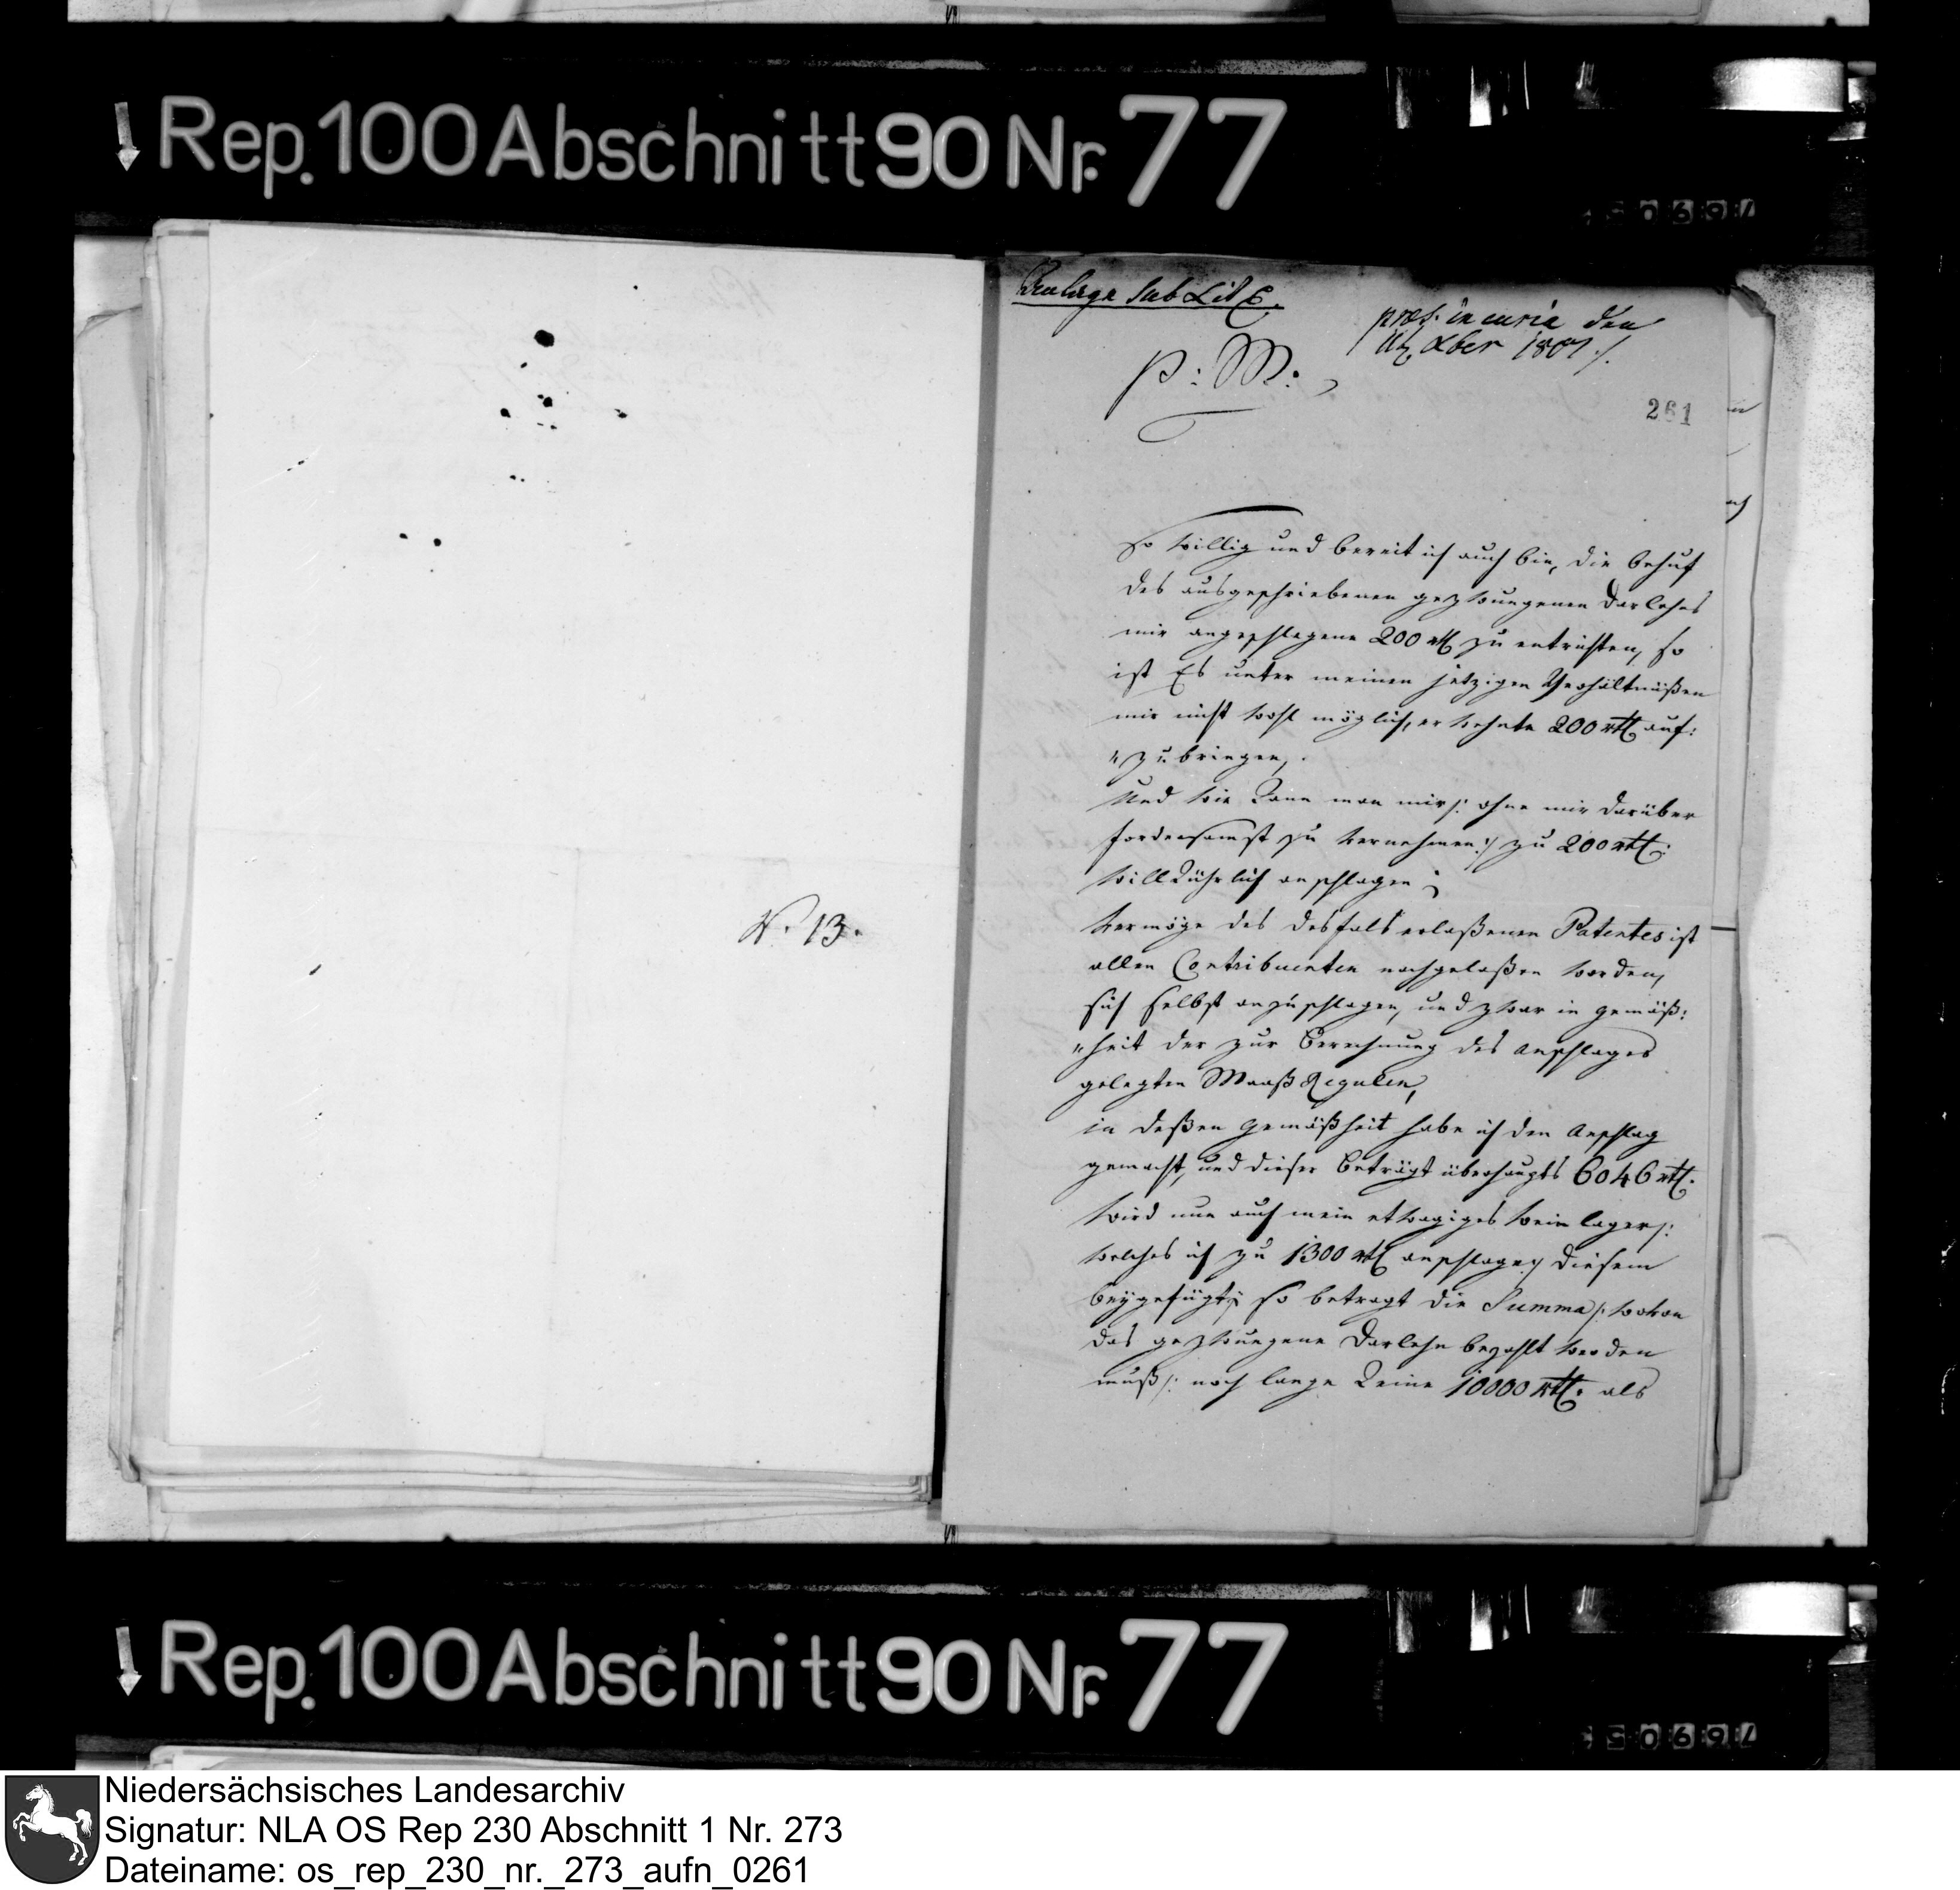 Rep. 100 Abschnitt 90 Nr. 77
N. 13.
Beulage sub Lit C.
præs. in curia den
Xber 1807 /.
p: M:
261
So willig und bereit ich auch bin, die behuf
des ausgeschriebenen gezwungenen Darlehns
mir angeschlagene 200 rtl zu entrichten, so
ist Es unter meinen jetzigen Verhältnüßen
mir nicht wohl möglich, erwehnte 200 rtl auf:
"zubringen,
Und wie kann man mir /: ohne mir darüber
fordersamst zu vernehmen :/ zu 200 rtl:
willkührlich anschlagen;
Vermöge des desfals erlaßenen Patentes ist
allen Contribuenten nachgelaßen worden,
sich selbst anzuschlagen, und zwar in gemäß:
"heit der zur Berechnung des Anschlages
gelegten Maaß Regulen,
in deßen Gemäßheit habe ich den Anschlag
gemacht, und dieser beträgt überhaupts 6046 rtl.
Wird nun auch mein etwagiges Wein lager /:
welches ich zu 1300 rtl anschlage :/ diesem
beygefügt; so betragt die Summa /: wovon
das gezwungene Darlehn bezahlt werden
muß /: noch lange keine 10000 rtl. als
Rep. 100 Abschnitt 90 Nr. 77
Niedersächsisches Landesarchiv
Signatur: NLA OS Rep 230 Abschnitt 1 Nr. 273
Dateiname: os_rep_230_nr._273_aufn_0261